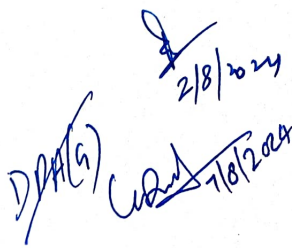 2/8/2024
DDA(G)
7/8/2024